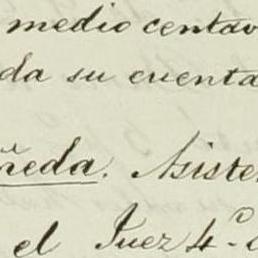 medio centav
da su cuenta
ñeda. Asiste
el Juez 4º